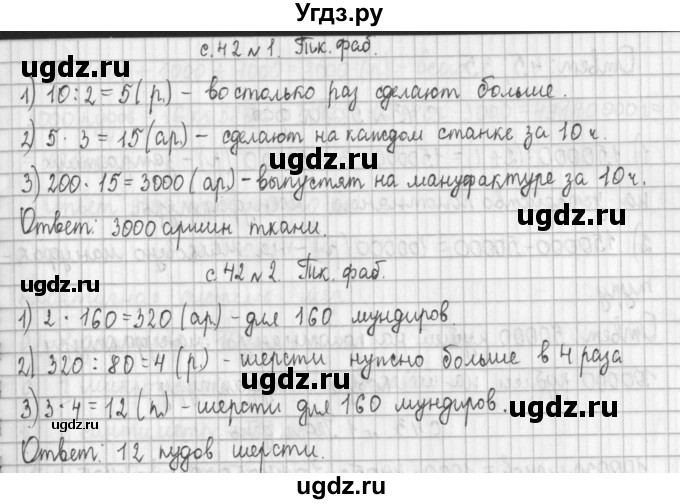 Угдз.ру
с. 42 № 1. Тк. фаб.
1) 10 : 2 = 5 (р.) – во столько раз сделают больше.
2) 5 · 3 = 15 (ар) – сделают на каждом станке за 10 ч.
3) 200 · 15 = 3000 (ар.) – выпустят на мануфактуре за 10 ч.
Ответ: 3000 аршин ткани.
с. 42 № 2. Тк. фаб.
1) 2 · 160 = 320 (ар.) – для 160 мундиров.
2) 320 : 80 = 4 (р.) – шерсти нужно больше в 4 раза
3) 3 · 4 = 12 (п.) – шерсти для 160 мундиров.
Ответ: 12 пудов шерсти.
ugdz.ru ugdz.ru
ugdz.ru ugdz.ru
ugdz.ru ugdz.ru
ugdz.ru ugdz.ru
ugdz.ru ugdz.ru
ugdz.ru ugdz.ru